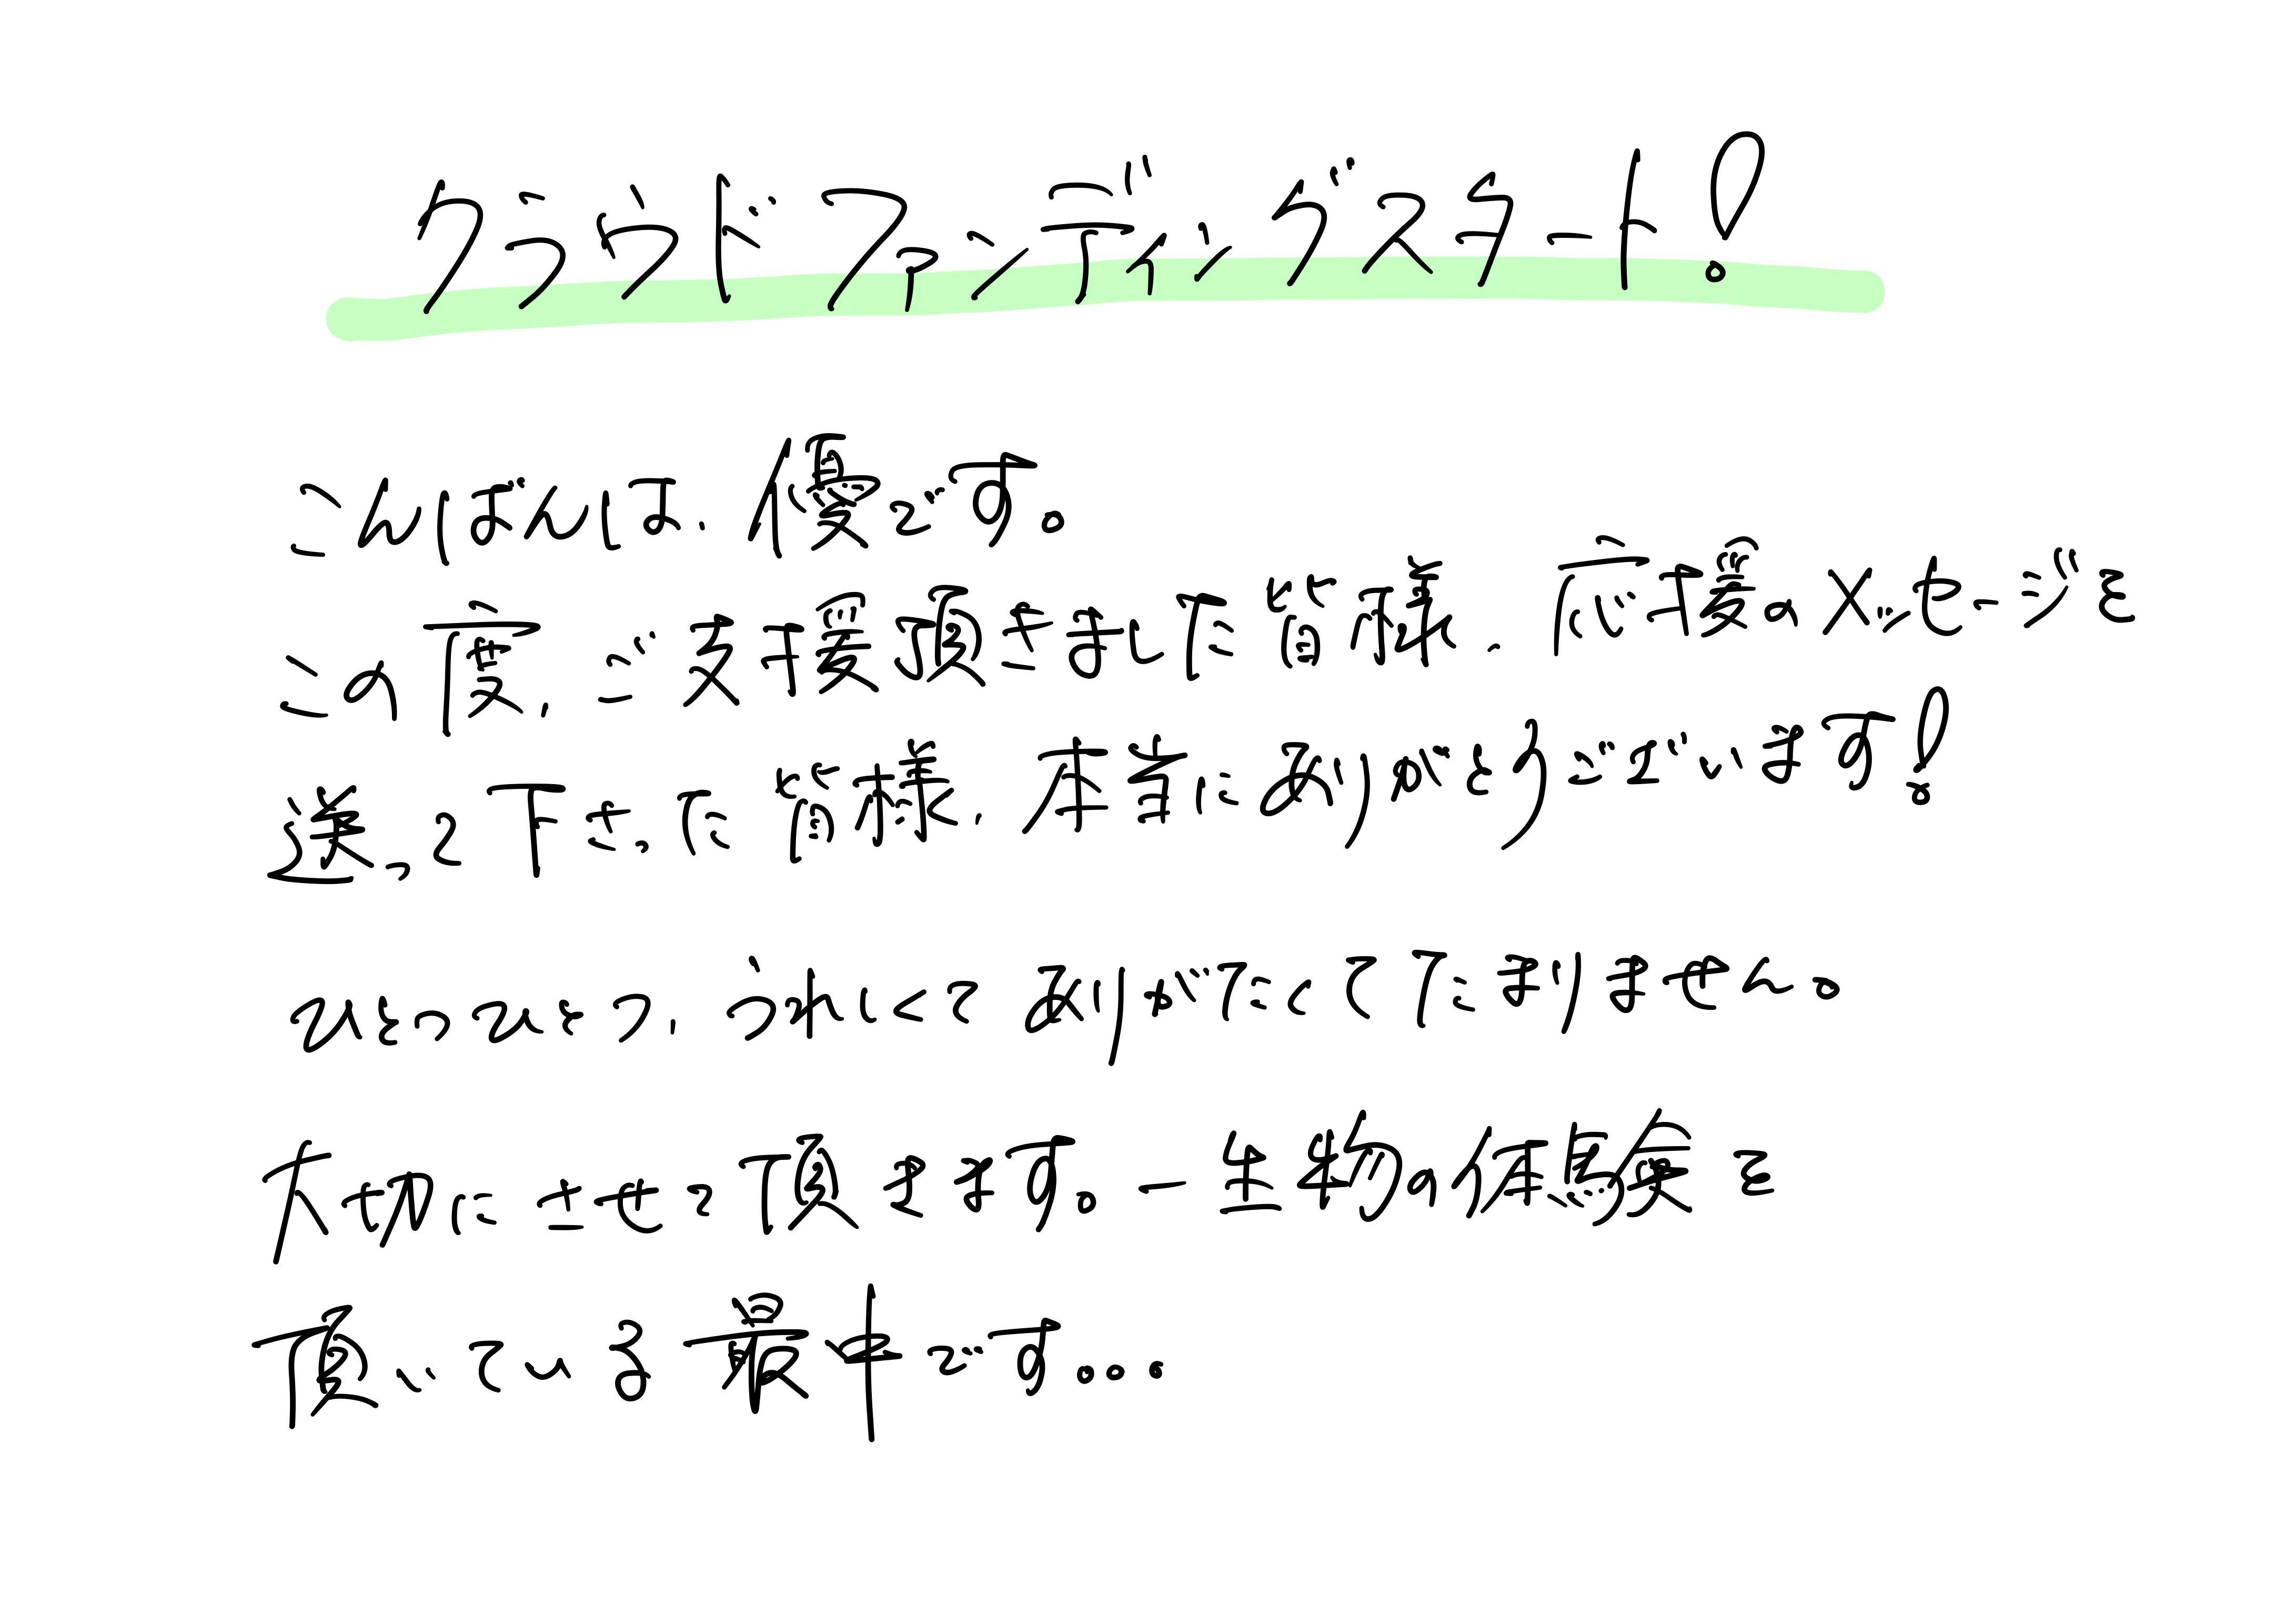 クラウドファンディングスタート!
こんばんは、優です。
この度、ご支援頂きました皆様、応援のメッセージを
送って下さった皆様、本当にありがとうございます!
ひとつひとつ、うれしくてありがたくてたまりません。
大切にさせて頂きます。一生物の体験を
頂いている最中です...